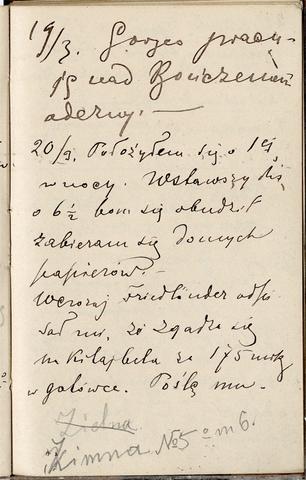 19/3. Gorzej pracu-
ję nad
20/3. Położyłem się o 1ej
w nocy. Wstawszy dziś
o 6½ bom się obudził
zabieram się do mych
papierów.-
Wczoraj Friedländer odpi-
sał mi, że zgadza się
na Kitajbeta za 175 mrk
w gotówce. Poślę mu.
Zielna
Zimna № 5 m 6.